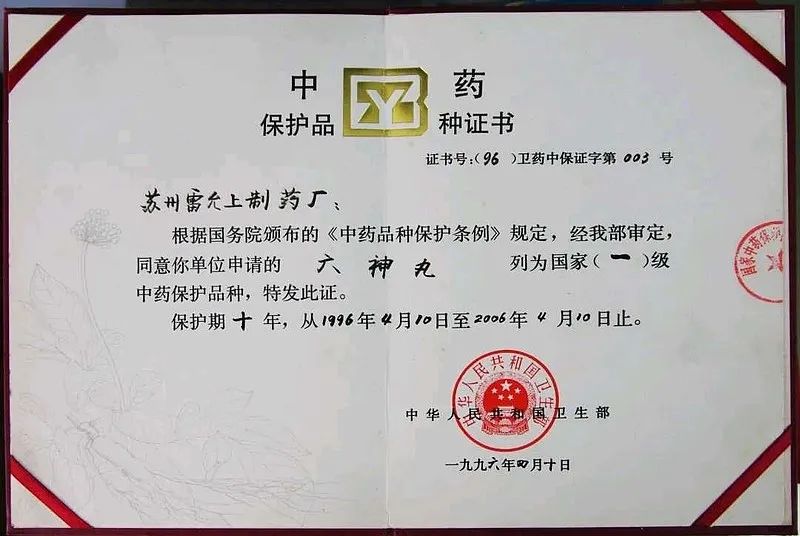 中药
保护品种证书
证书号:(96)卫药中保证字第003号
苏州雷允上制药厂:
根据国务院颁布的《中药品种保护条例》规定,经我部审定,
同意你单位申请的 六神丸 列为国家(一)级
中药保护品种,特发此证。
保护期十年,从1996年4月10日至2006年4月10日止。
中华人民共和国卫生部
中华人民共和国卫生部
一九九六年四月十日
国家中药保